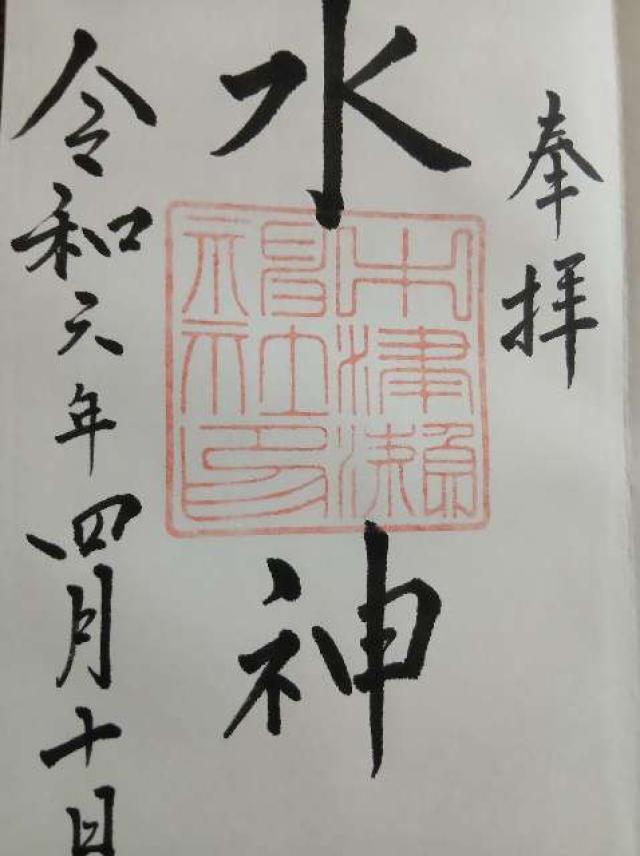 奉拝
水神
中津瀬
神社印
令和六年四月十日